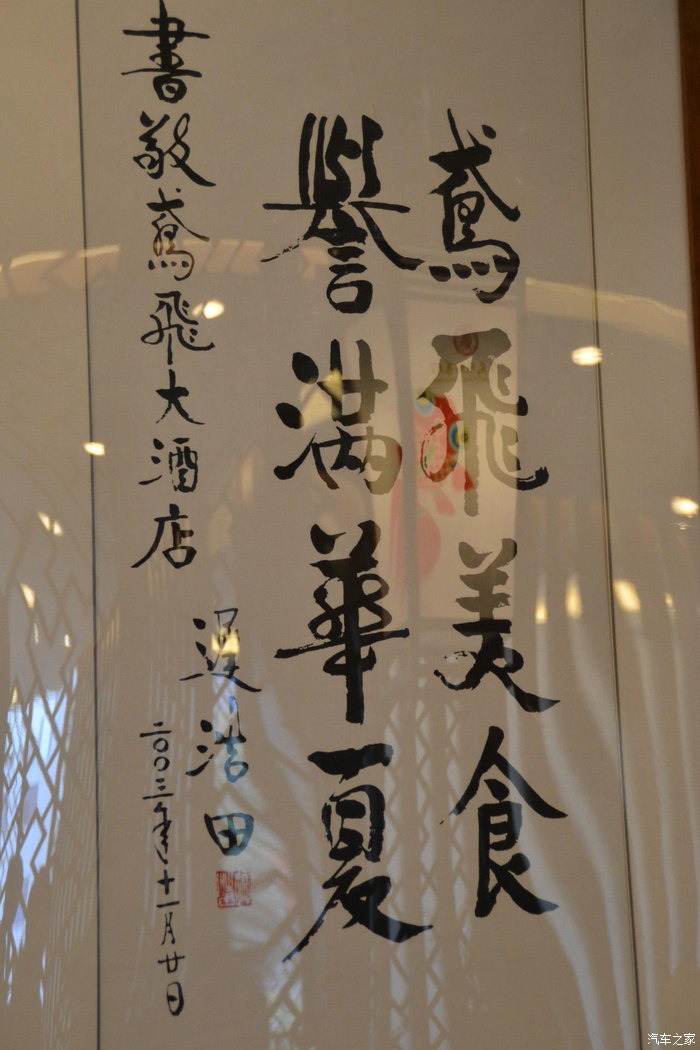 鳶飛美食
譽满華夏
書敬鳶飛大酒店
遲浩田
二〇〇三年十一月廿日
汽车之家